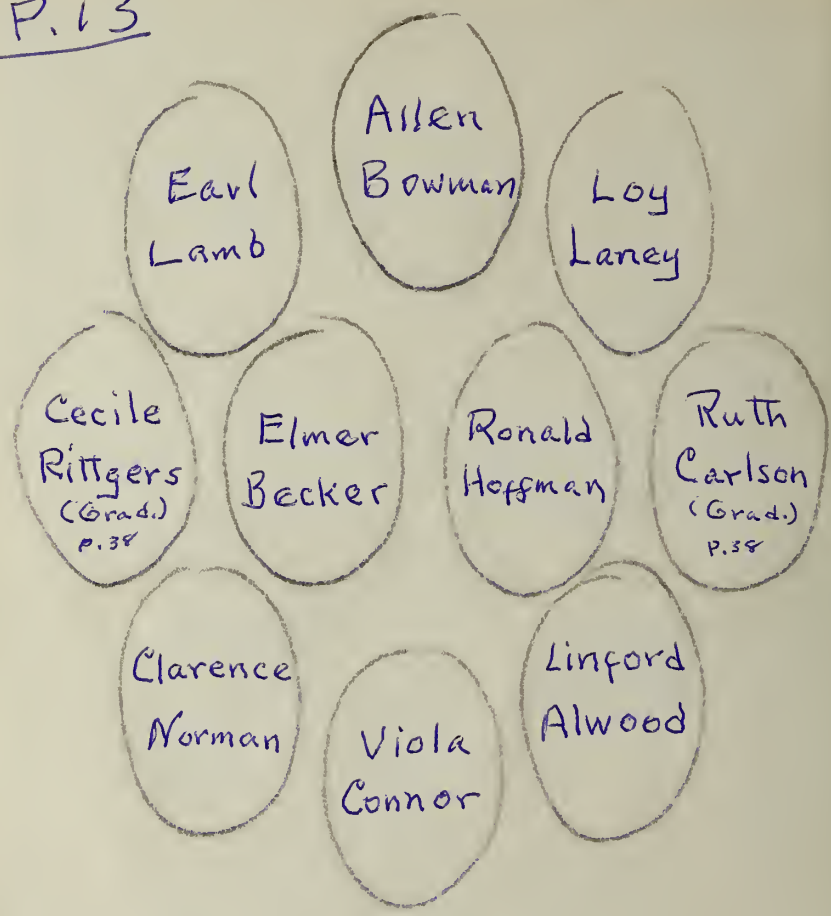 P.13
Allen
Bowman
Earl
Lamb
Loy
Laney
Cecile
Rittgers
(Grad.)
P.38
Elmer
Becker
Ronald
Hoffman
Ruth
Carlson
(Grad.)
P.38
Clarence
Norman
Viola
Connor
Linford
Alwood